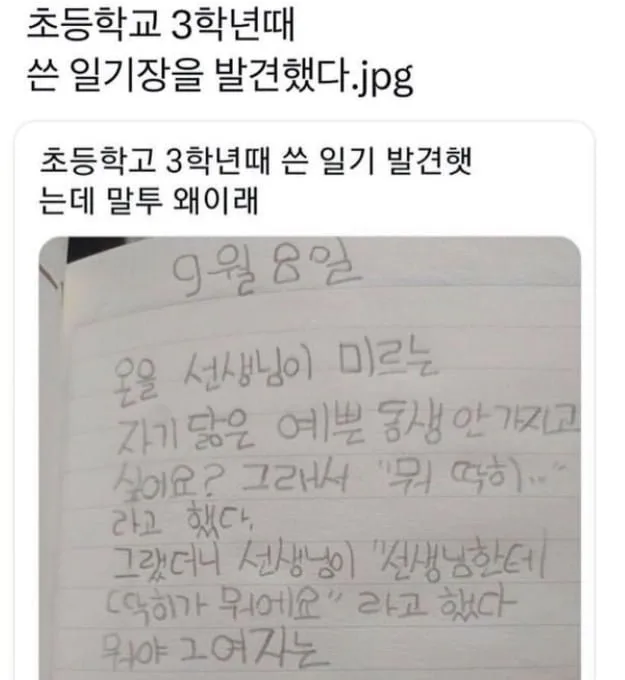 초등학교 3학년때
쓴 일기장을 발견했다.jpg
초등학고 3학년때 쓴 일기 발견햇
는데 말투 왜이래
9월 8일
온을 선생님이 미르는
자기 닮은 예쁜 동생 안 가지고
싶어요? 그래서 "뭐 딱히..."
라고 했다.
그랬더니 선생님이 "선생님한테
딱히가 뭐에요" 라고 했다
뭐야 그여자는